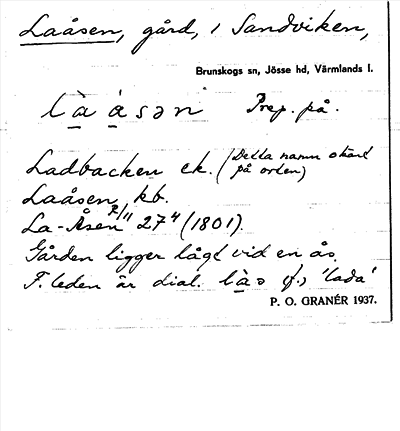 Laåsen, gård, i Sandviken,
Brunskogs sn, Jösse hd, Värmlands l.
là àsən Prep. på.
Ladbacken ek. (Detta namn okänt
på orten)
Laåsen kb.
La-Åsen 2/11 27⁴ (1801).
Gården ligger lågt vid en ås.
F. leden är dial. là f., 'lada'
P. O. GRANÉR 1937.